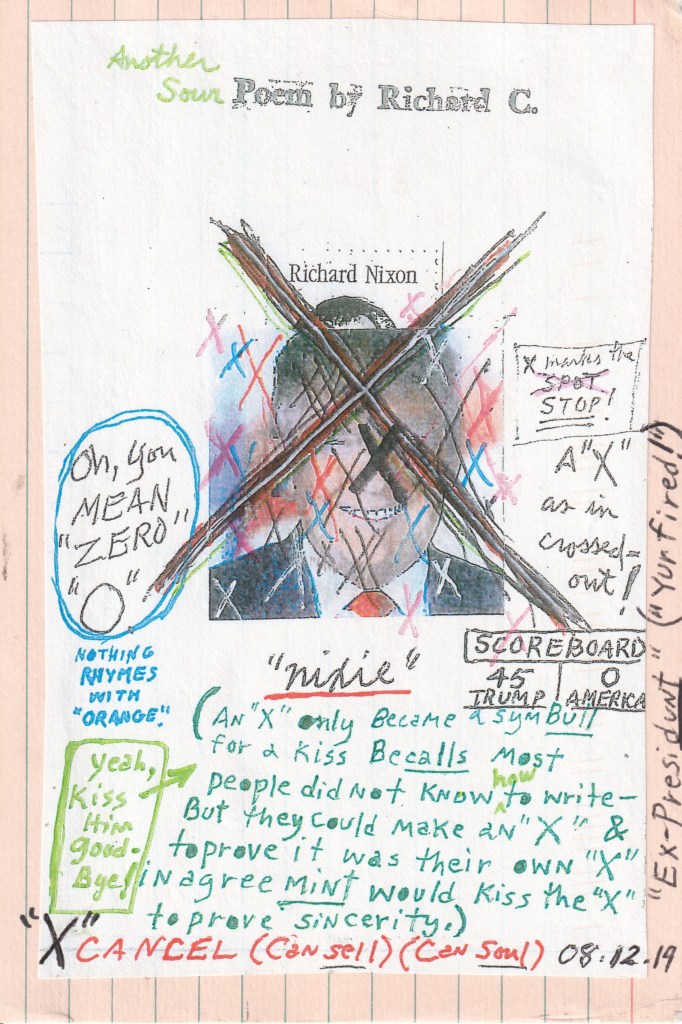 Another
Sour Poem by Richard C.
Richard Nixon
X marks the
SPOT
STOP!
A "X"
as in
crossed-
out!
Oh, you
MEAN
"ZERO"
"O"
NOTHING
RHYMES
WITH
"ORANGE."
"nixie"
SCOREBOARD
45 0
TRUMP AMERICA
(AN "X" only Became a symBull
for a Kiss Becalls Most
people did Not Know how to write—
But they could make an "X" &
to prove it was their own "X"
in agree MINT would Kiss the "X"
to prove sincerity.)
Yeah,
Kiss
Him
good-
Bye!
"X" CANCEL (Can sell) (Can Soul) 08.12.19
"Ex-Presidunt" ("Yur Fired!")